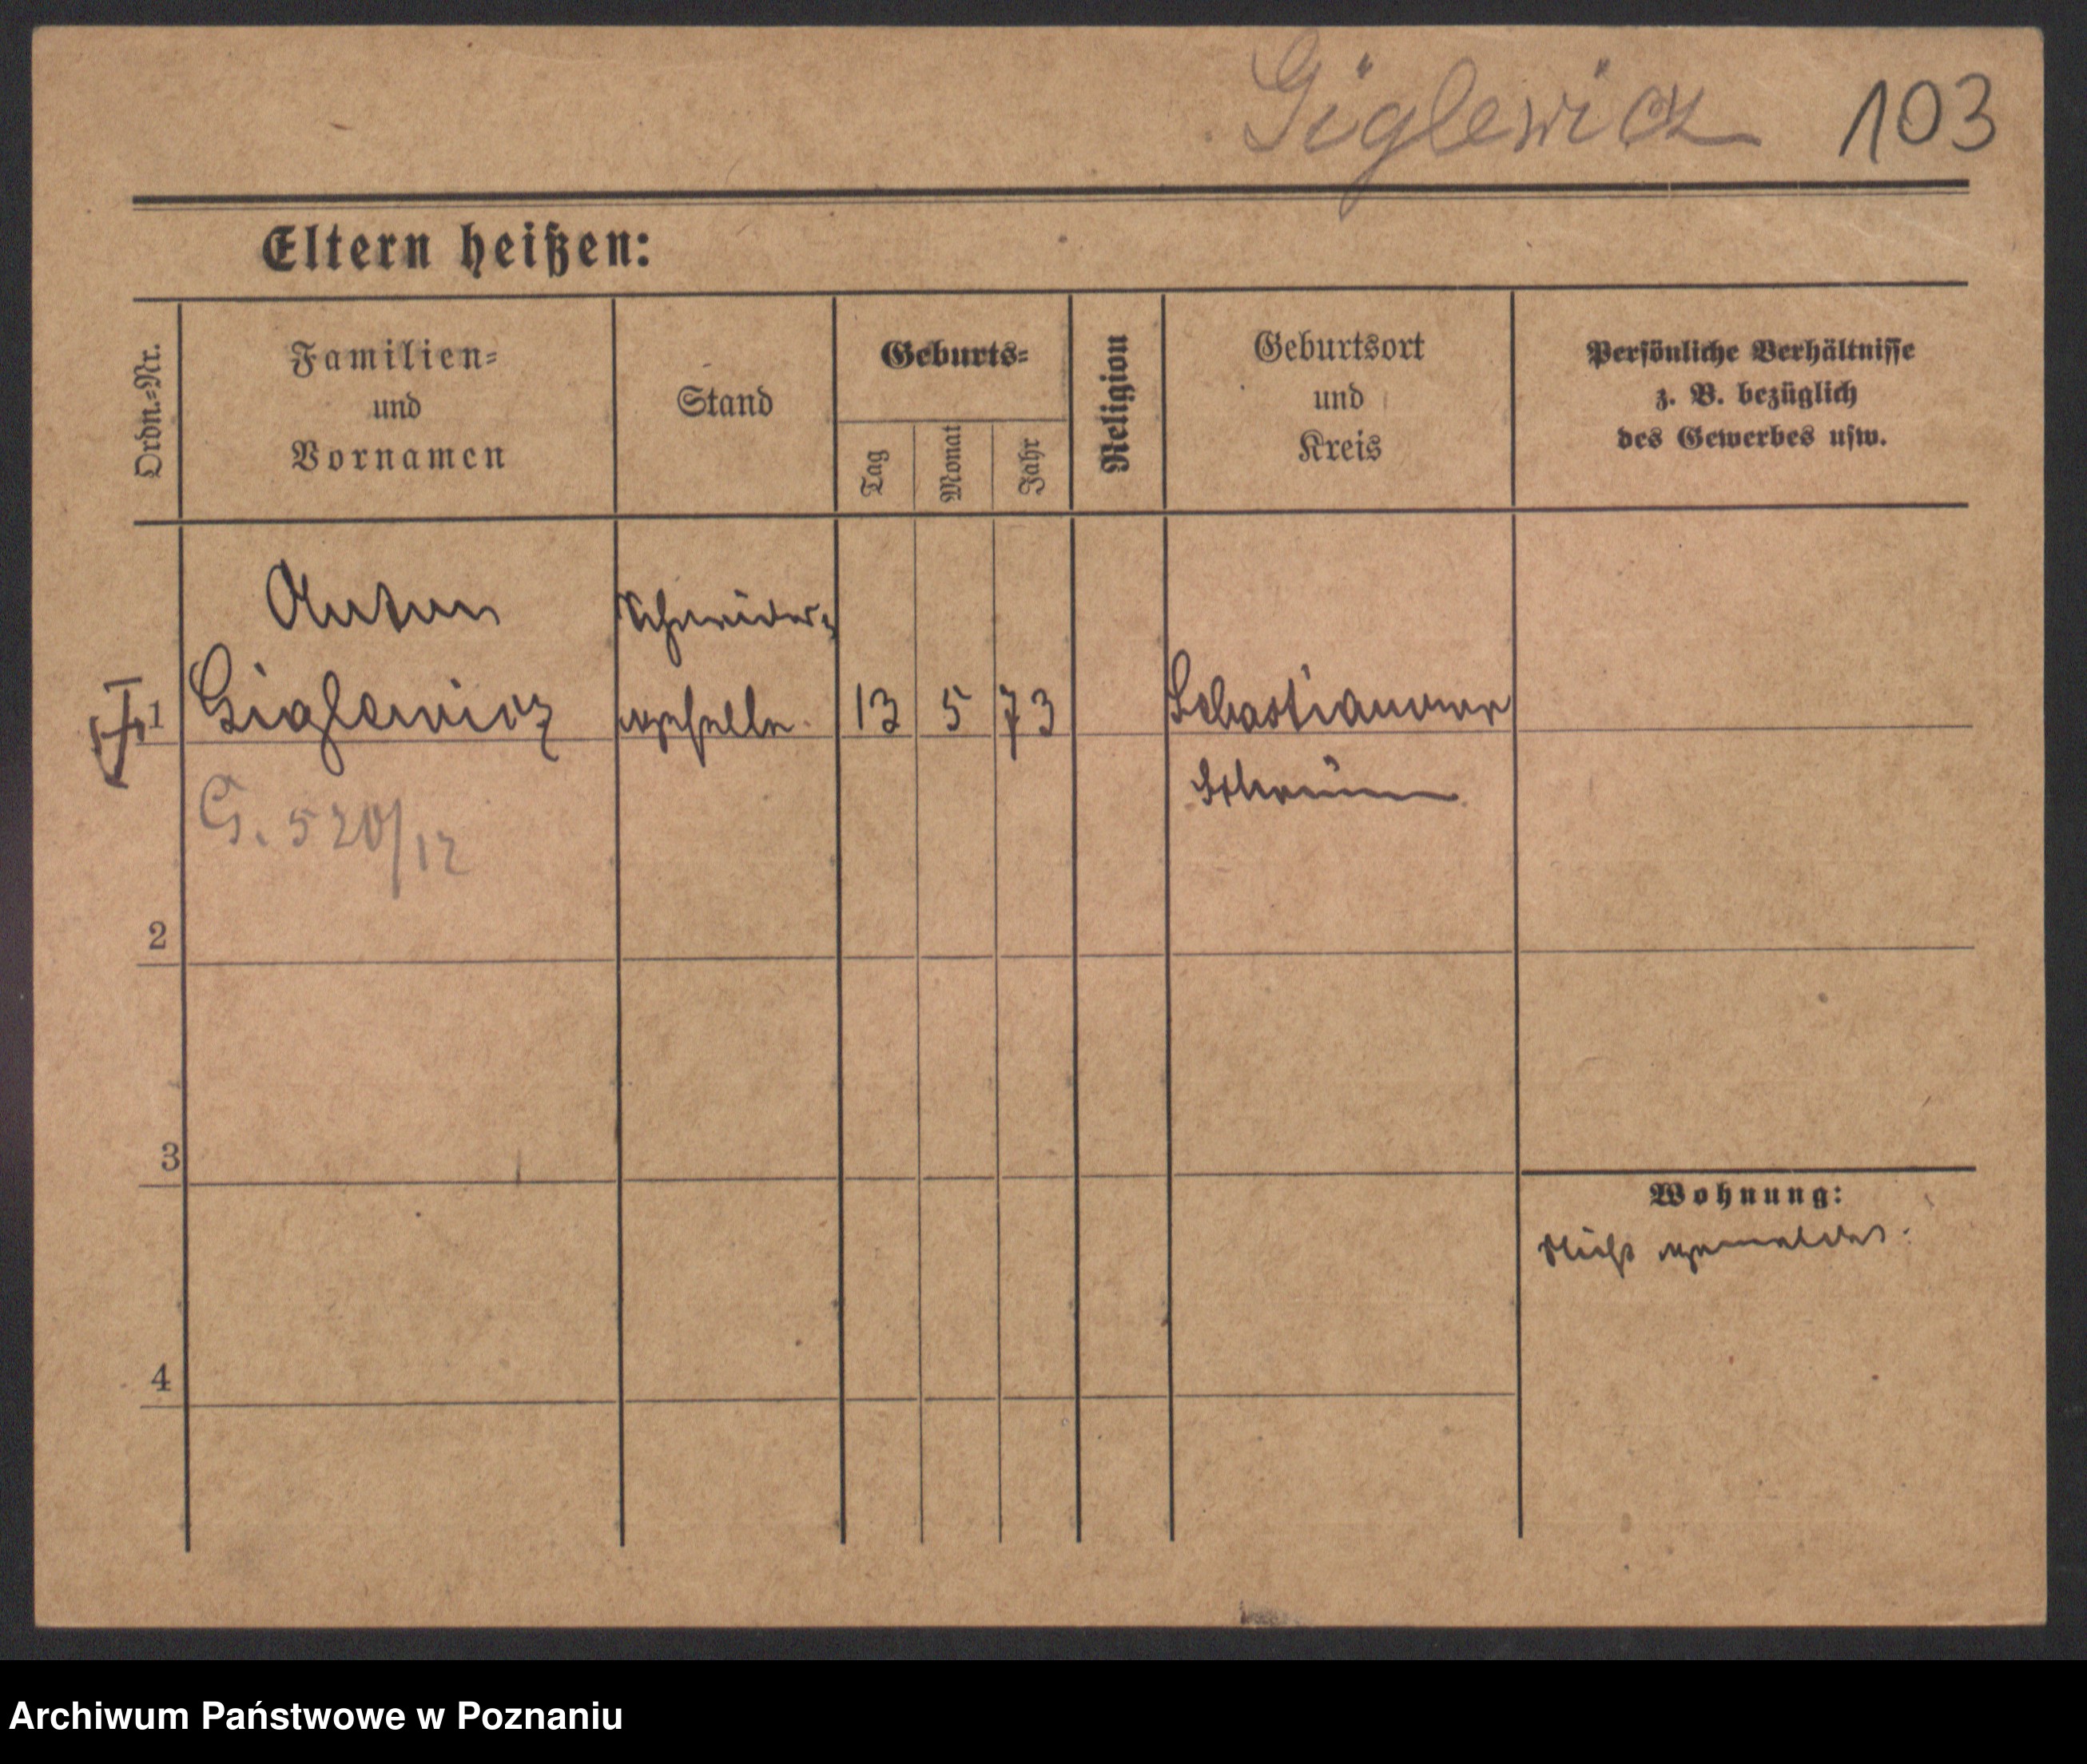 Giglewicz 103
Eltern heißen:
Ordn.=Nr.
Familien=
und
Vornamen
Stand
Geburts=
Tag
Monat
Jahr
Religion
Geburtsort
und
Kreis
Persönliche Verhältnisse
z. B. bezüglich
des Gewerbes usw.
Anton Schneider=
1 Giglewicz geselle. 13 5 73
Schrimm
G. 520/12
2
3
Wohnung:
Nicht gemeldet.
4
Archiwum Państwowe w Poznaniu